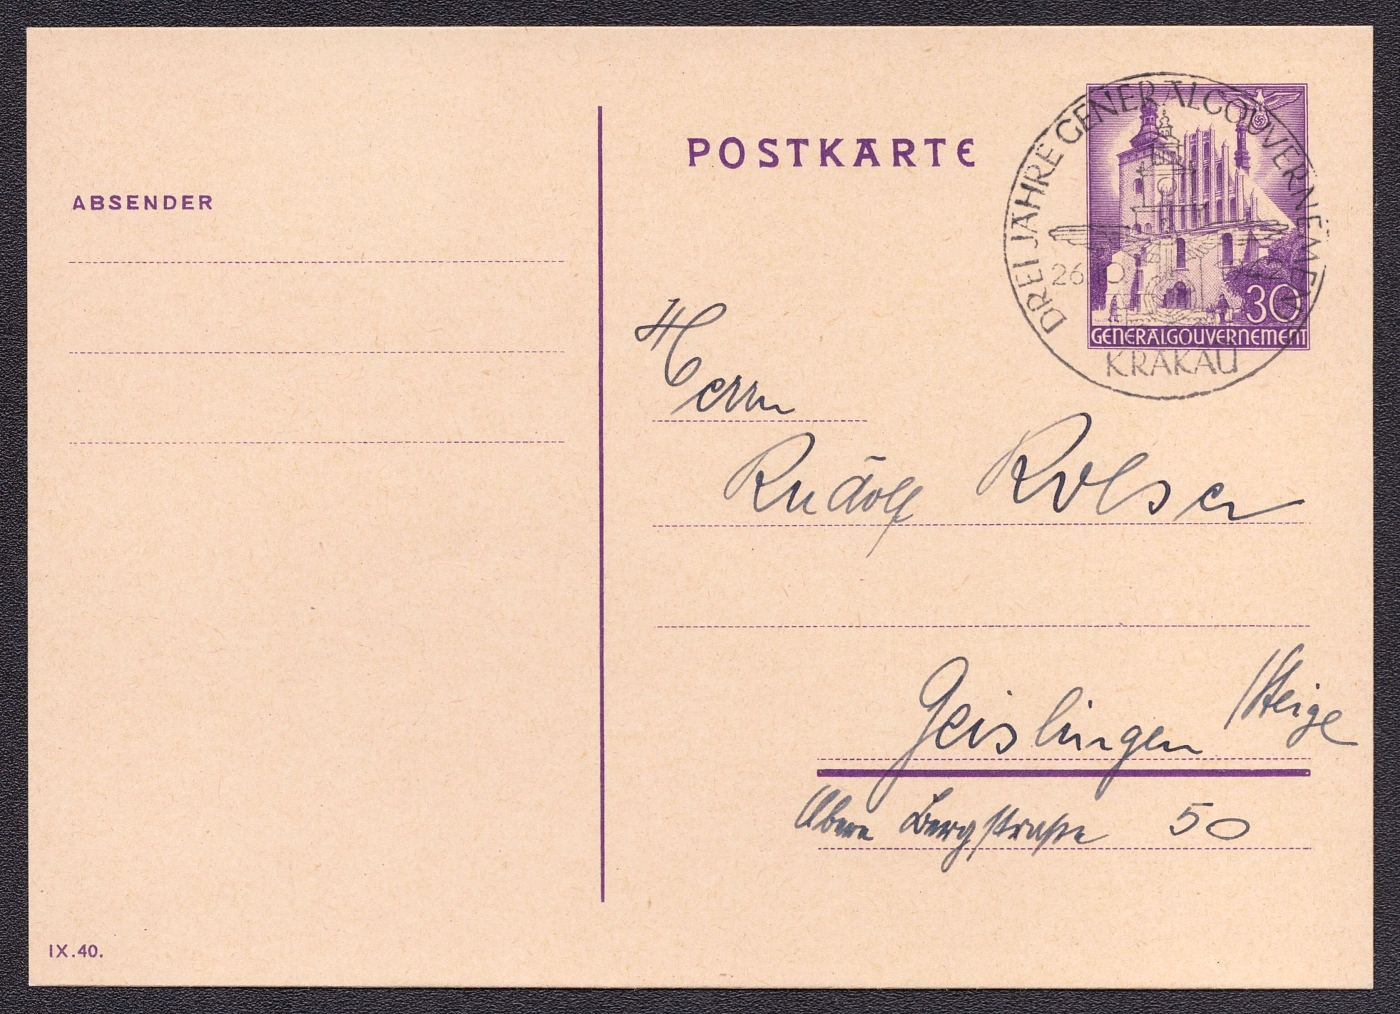 POSTKARTE
DREI JAHRE GENERALGOUVERNEMENT
26 10
KRAKAU
30
GENERALGOUVERNEMENT
ABSENDER
Herrn
Rudolf Rolser
Geislingen /Steige
Obere Bergstraße 50
IX.40.